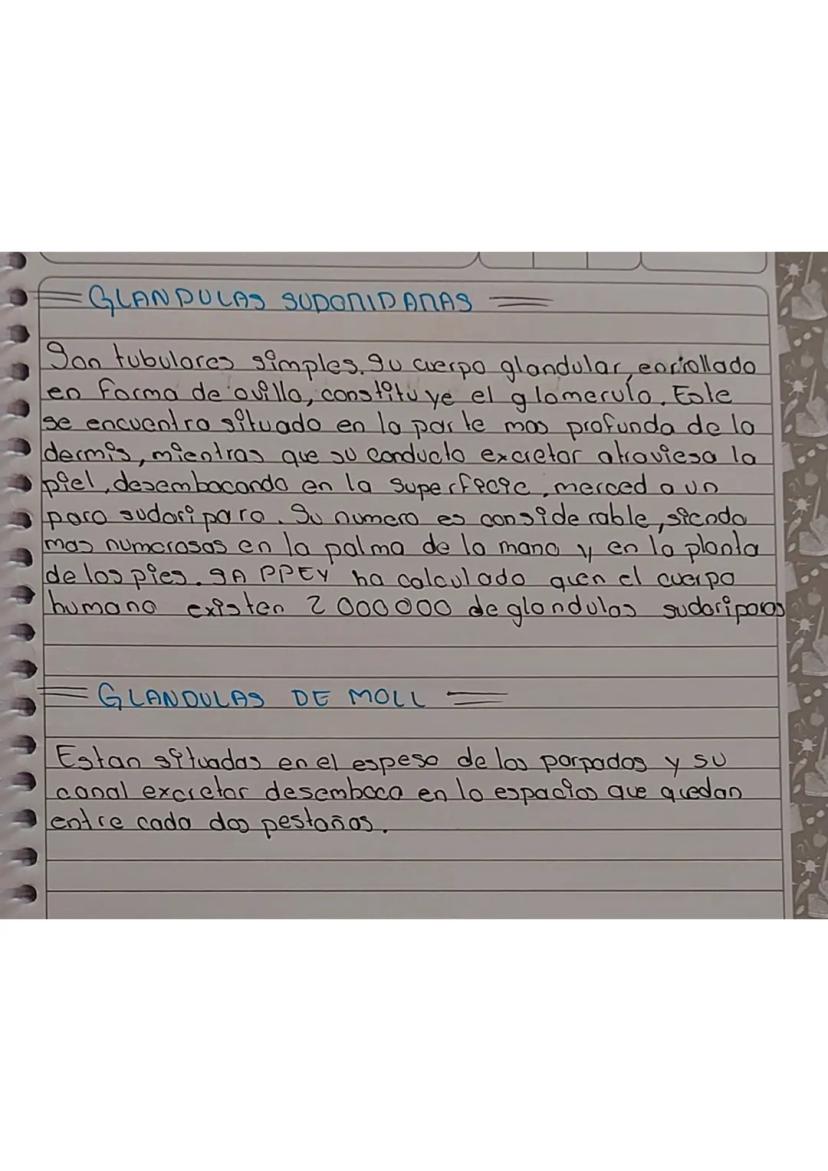 GLANDULAS SUDORIPARAS
Son tubulares simples. Su cuerpo glandular, enriollado
en forma de ovillo, constituye el glomerulo. Este
se encuentra situado en la parte mas profunda de la
dermis, mientras que su conducto excretor atraviesa la
piel, desembocando en la superfecie, merced a un
poro sudoriparo. Su numero es considerable, siendo
mas numerosas en la palma de la mano y en la planta
de los pies. SAPPEY ha calculado quen el cuerpo
humano existen 2 000000 de glandulas sudoriparas
GLANDULAS DE MOLL
Estan situadas en el espeso de los parpados y su
canal excretor desemboca en lo espacios que quedan
entre cada dos pestañas.